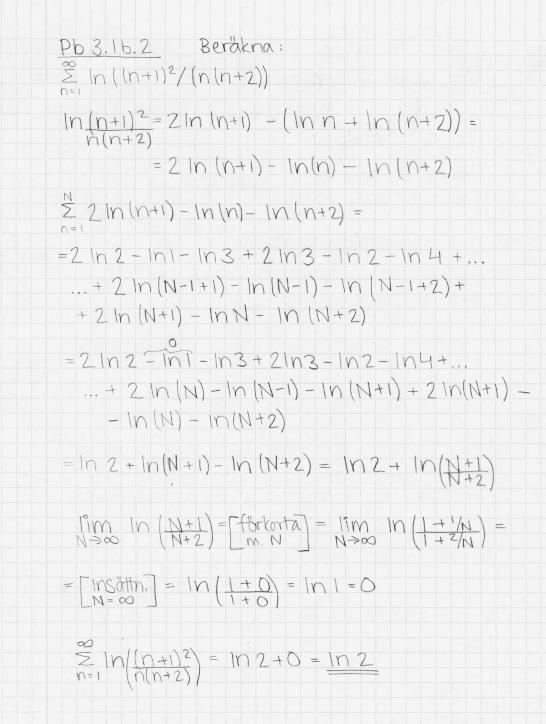 Pb 3.1b.2 Beräkna:
∞ Σ n=1 ln((n+1)²/(n(n+2))
ln (n+1)²/n(n+2) = 2 ln (n+1) - (ln n + ln (n+2)) =
= 2 ln (n+1) - ln(n) - ln(n+2)
N Σ n=1 2 ln(n+1) - ln(n) - ln(n+2) =
= 2 ln 2 - ln 1 - ln 3 + 2 ln 3 - ln 2 - ln 4 + ...
... + 2 ln (N-1+1) - ln (N-1) - ln (N-1+2) +
+ 2 ln (N+1) - ln N - ln (N+2)
0
= 2 ln 2 - ln 1 - ln 3 + 2 ln 3 - ln 2 - ln 4 + ...
... + 2 ln (N) - ln (N-1) - ln (N+1) + 2 ln(N+1) -
- ln (N) - ln(N+2)
= ln 2 + ln(N+1) - ln (N+2) = ln 2 + ln(N+1/N+2)
lim N→∞ ln (N+1/N+2) = [förkorta m. N] = lim N→∞ ln (1 + 1/N / 1 + 2/N) =
= [insättn. N = ∞] = ln (1+0/1+0) = ln 1 = 0
∞ Σ n=1 ln((n+1)²/n(n+2)) = ln 2 + 0 = ln 2